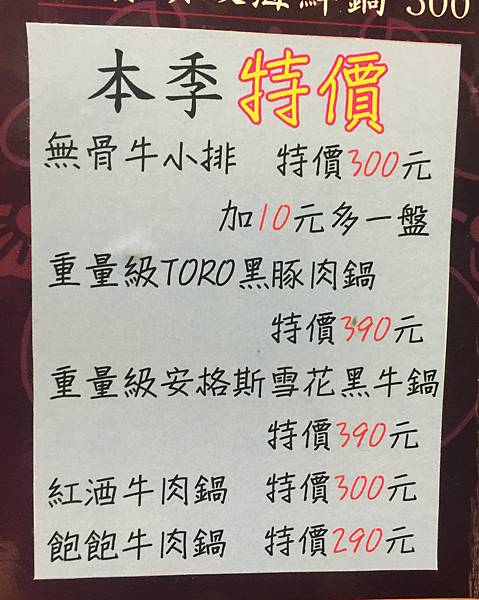 海鮮鍋 300
本季特價
無骨牛小排 特價300元
加10元多一盤
重量級TORO黑豚肉鍋
特價390元
重量級安格斯雪花黑牛鍋
特價390元
紅酒牛肉鍋 特價300元
飽飽牛肉鍋 特價290元